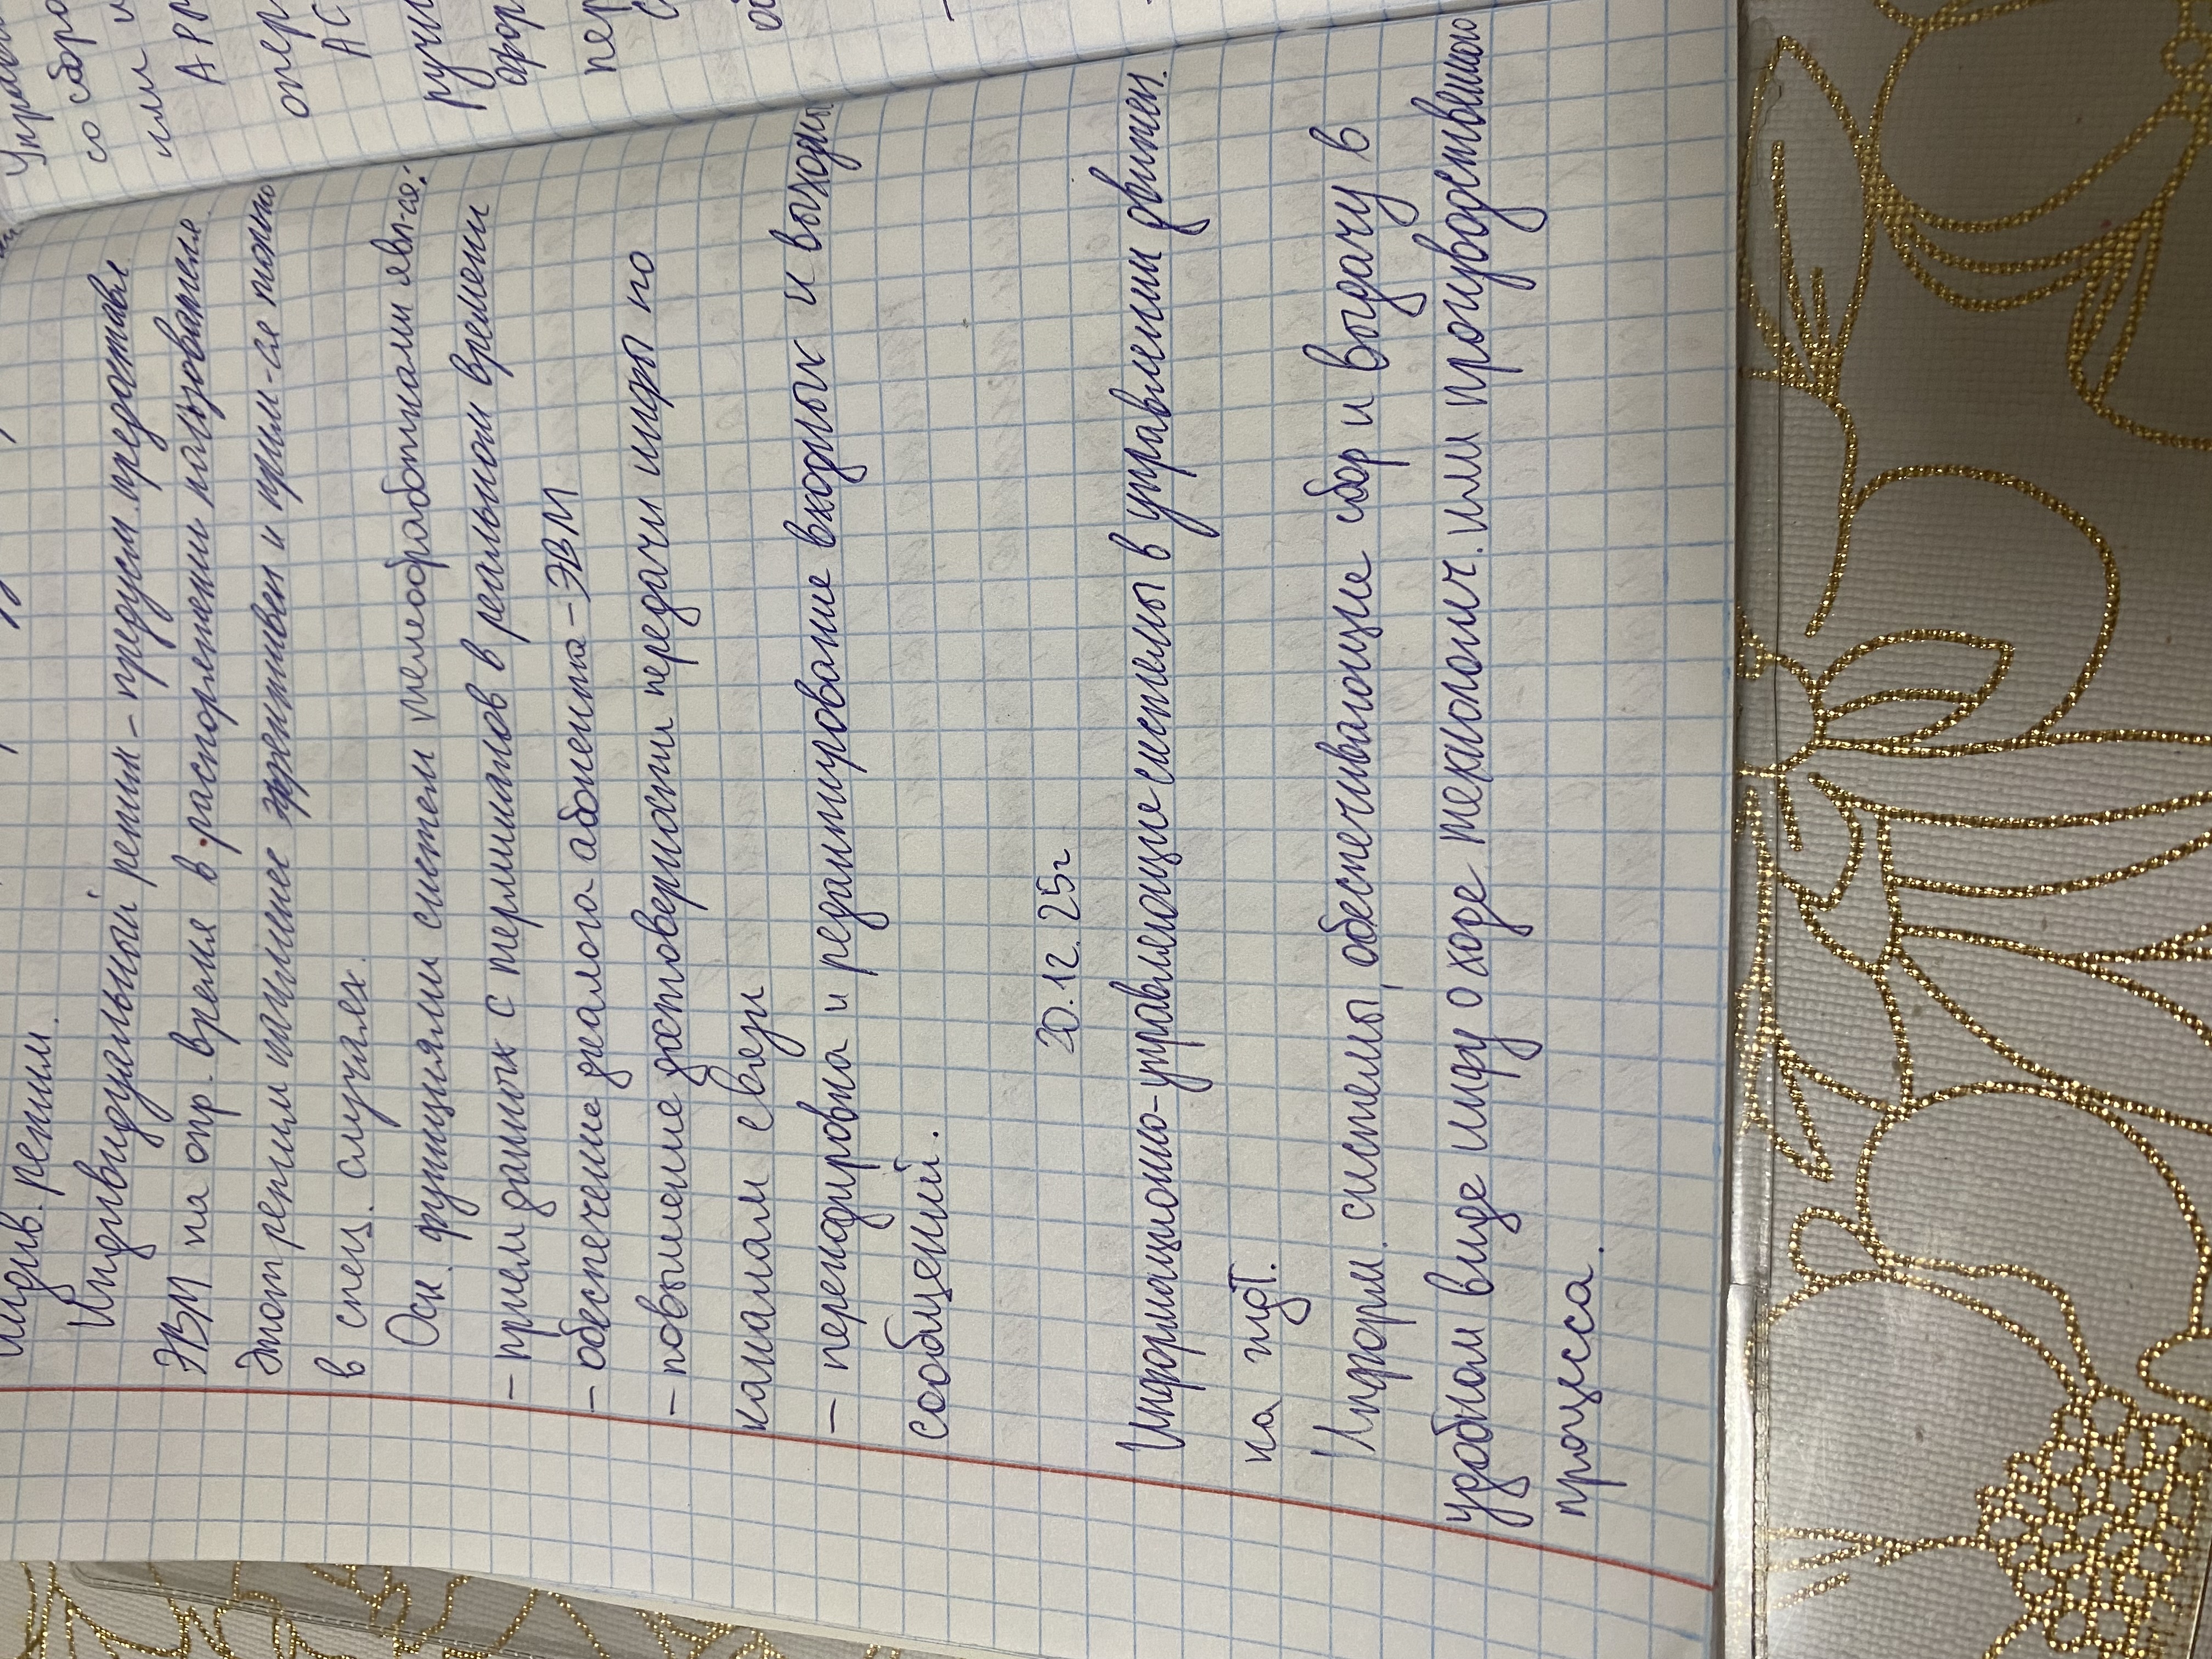 индив. режим.
Индивидуальный режим – предусм. предоставл.
ЭВМ на опр. время в распоряжении пользователя.
Этот режим наименее эффективен и прим-ся только
в спец. случаях.
Осн. функциями систем телеобработками явл-ся:
– прием данных с терминалов в реальном времени
– обеспечение диалога абонента – ЭВМ
– повышение достоверности передачи инфы по
каналам связи
– перекодировка и редактирование входных и выходных
сообщений.
20.12.25г
Информационно-управляющие системы в управлении движен.
на жд Т.
Информ. системы, обеспечивающие сбор и выдачу в
удобном виде инфу о ходе технологич. или производственного
процесса.
Управ
со сбор
или и
АРМ
опер
АС
ручн
офор
пер